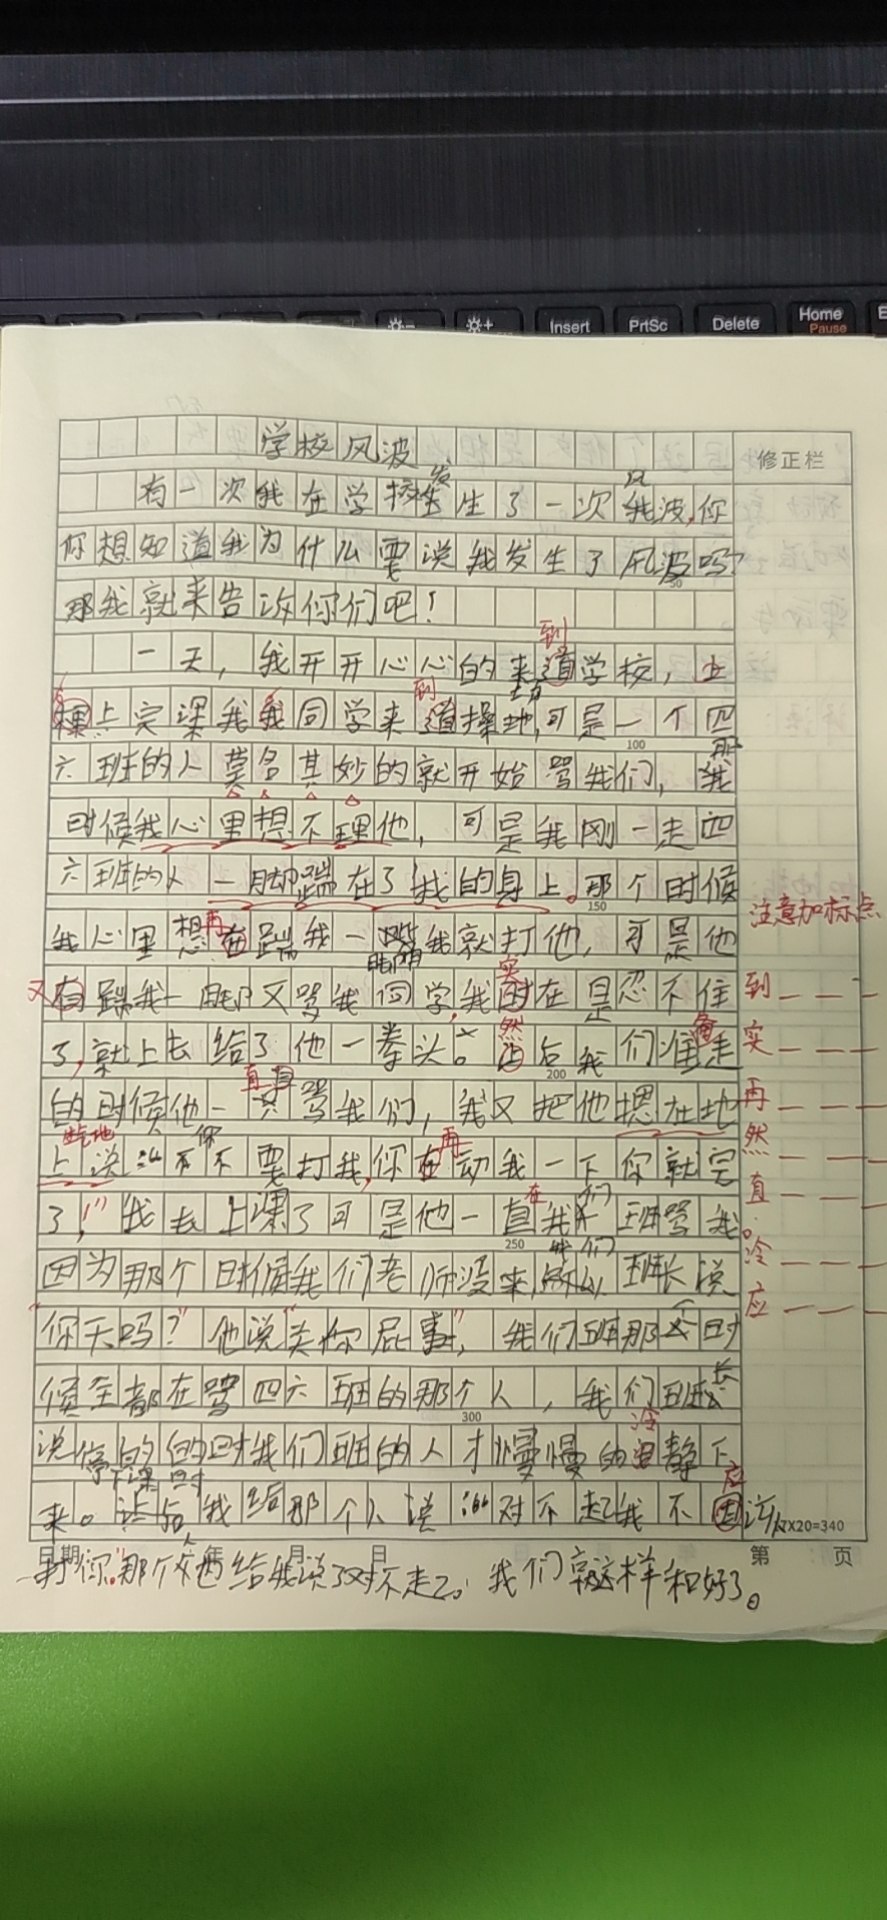 Insert PrtSc Delete Home Pause
学校风波
修正栏
有一次我在学校发生了一次风波,你
你想知道我为什么要说我发生了风波吗?
那我就来告诉你们吧!
一天,我开开心心的来道学校,上
到
上完课我同学来道操场,可是一个四
到
100
六班的人莫名其妙的就开始骂我们,那
时候我心里想不理他,可是我刚一走四
六班的人一脚踹在了我的身上。那个时候
150
注意加标点
我心里想在踹我一脚我就打他,可是他
再
有踹我一脚又骂我同学,我时在是忍不住
又
实
到
了,就上去给了他一拳头。后我们准走
然
备
200
实
的时候他一只骂我们,我又把他摁在地
直
再
上说:“你不要打我,你在动我一下你就完
生气地
再
然
了!”我去上课了可是他一直我们班骂我
在
250
我们
直
因为那个时候我们老师没来,班长说
冷
“你天吗?”他说“关你屁事”,我们班那个时
应
候全都在骂四六班的那个人,我们班长
300
说停的时我们班的人才慢慢的静下
冷
来。下课时我给那个人说:“对不起我不因该
应
X20=340
日期 年 月 日
第 页
打你。”那个人也给我说了对不走了。我们就这样和好了。